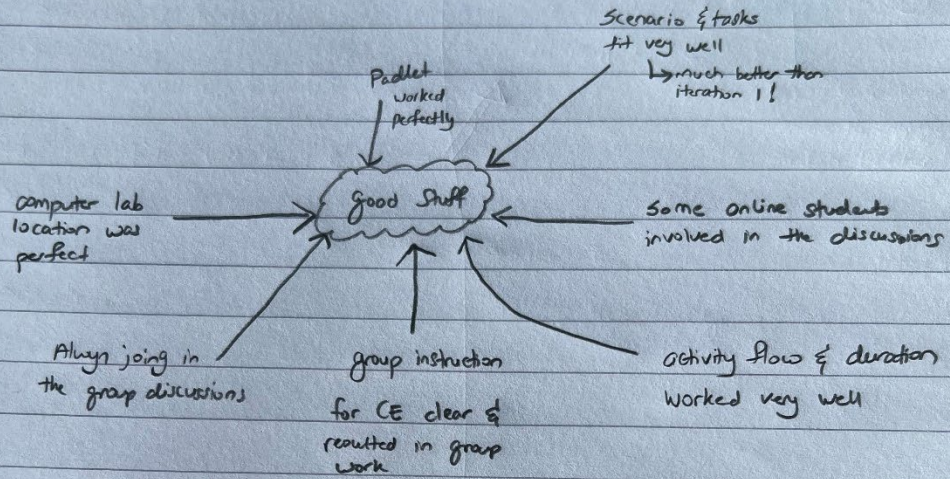 Scenario & tasks
fit very well
↳ much better than
iteration 1!
Padlet
worked
perfectly
Good Stuff
computer lab
location was
perfect
Some online students
involved in the discussions
Alwyn joing in
the group discussions
group instruction
for CE clear &
resultted in group
work
activity flow & duration
worked very well